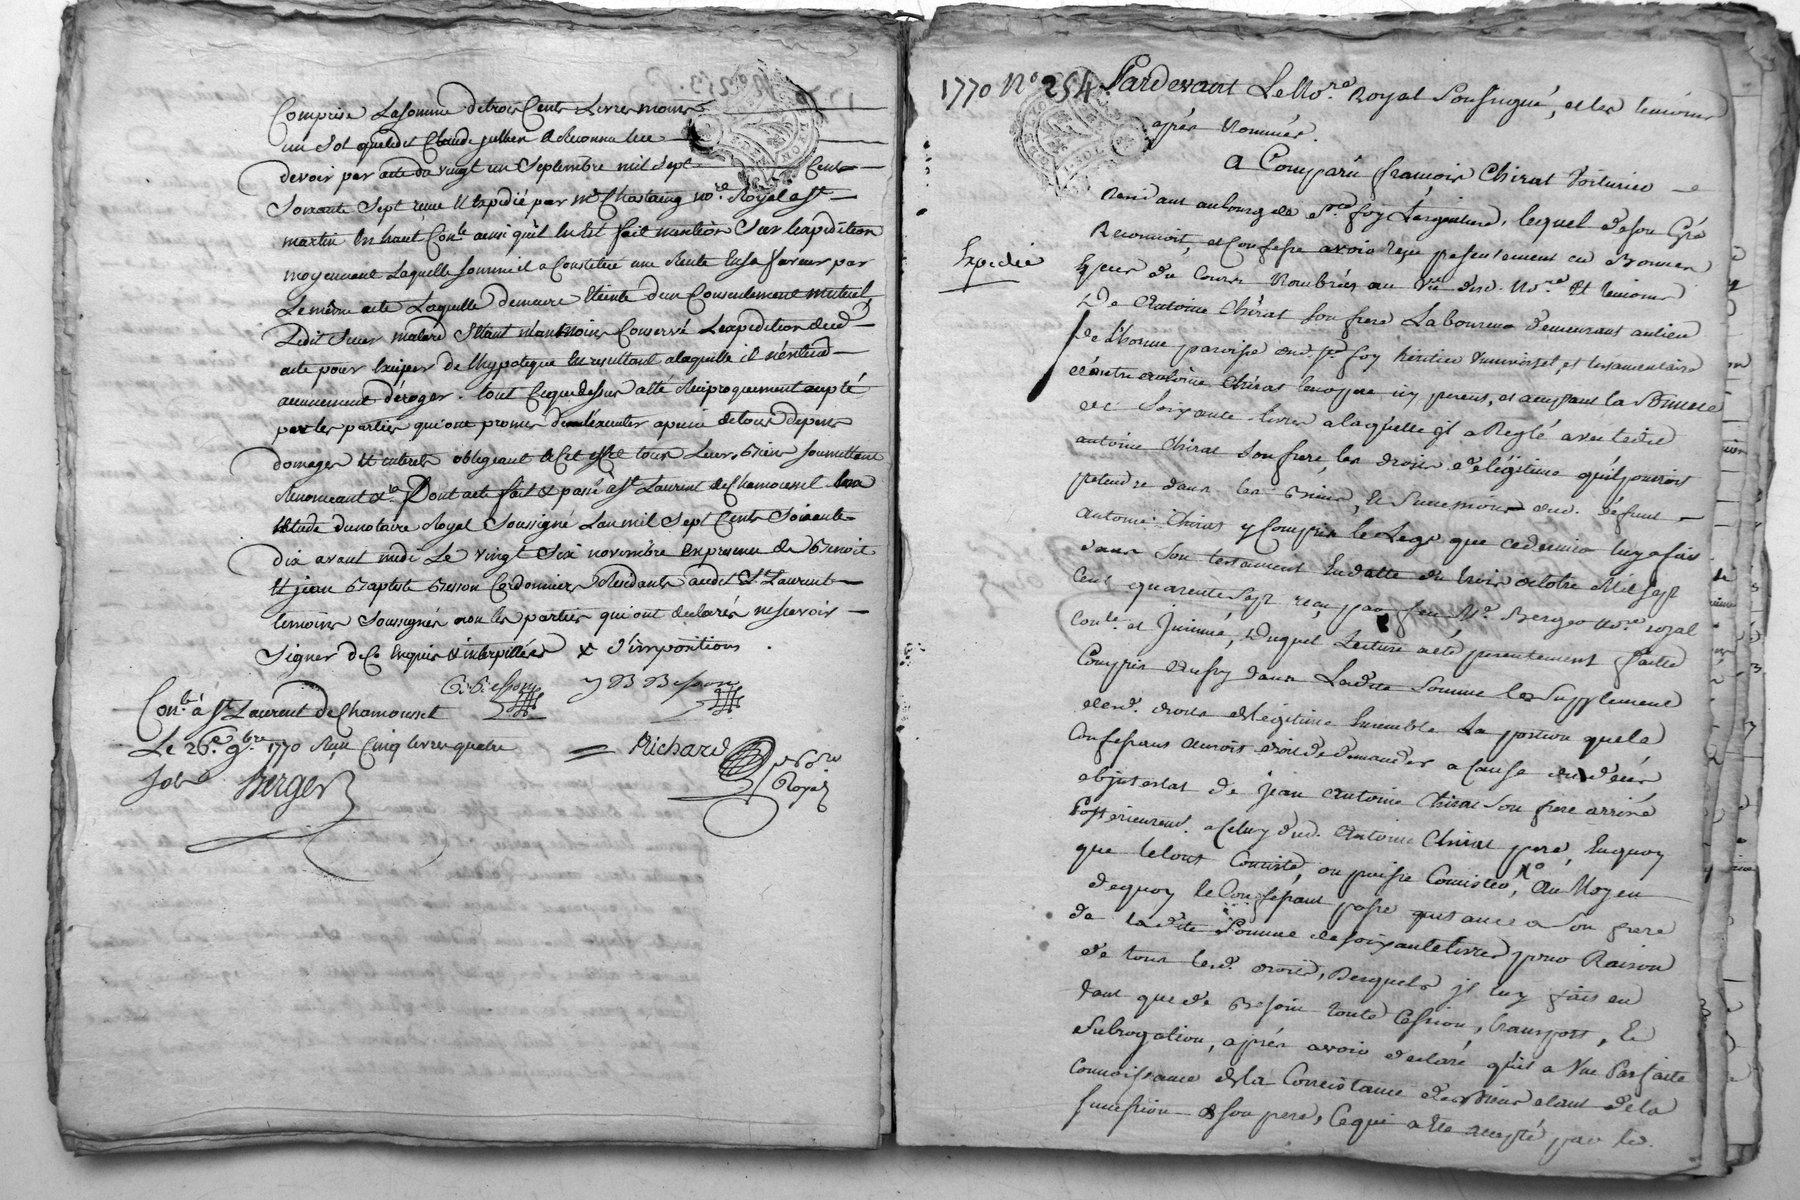 Comprise La somme de trois Cents Livres moins
un sol que ledit Claude jullien a Reconnu luy
devoir par acte du vingt un Septembre mil sept Cent
Soixante Sept reçue Et Expédié par Me Chastaing nore Royal a St
martin En haut Conlé ainsi qu'il En Est fait mention Sur lexpédition
moyennant Laquelle somme il a Constitué une Rente En sa faveur par
Le même acte Laquelle demeure Eteinte d'un Consentement mutuel
Ledit Sieur
acte pour hypoteque En resultant a laquelle il n'entend
aucunement déroger. tout Ce que dessus a été Réciproquement accepté
par les parties qui ont promis de l'exécuter a peine de tous depens
domages Et interets obligeant a Cet effet tous Leurs Biens soumettant
Renonceant &a Dont acte fait & passé a St Laurent de Chamousset
Etude du notaire Royal Soussigné L'an mil Sept Cents Soixante
Dix avant midi Le vingt Six novembre En presence de Benoit
Et jean Baptiste Besson Cordonniers Residants audit St Laurent
temoins Soussignés non les parties qui ont declarés ne scavoir
Signer de Ce Enquis & interpellées &
B. Besson J B Besson
Conlé à St Laurent de Chamousset
Le 26e 9bre 1770 Reçu Cinq livres quatre
sols Berger
Richard nore Royal
1770 No 254 Pardevant Le Nore Royal Soussigné, et les temoins
après Nommés.
A Comparû françois Chirat Voiturier
Residant au bourg de Ste foy L'argentiere, lequel de son Gré
Reconnoit, et Confesse avoir reçu presentement en Bonnes
Expedié
Especes du Cours Nombrées au Vu dud. Nore Et temoins
De Antoine Chirat son frere Laboureur demeurant au lieu
de L'horme paroisse dud. Ste foy heritier Universel, et testamentaire
d'autre Antoine Chirat leur pere icy present, et acceptant la Somme
de Soixante livres a laquelle il a Reglé avec ledit
antoine Chirat Son frere les droits de légitime qu'il pouvoit
pretendre dans les Biens, Et Succession dud. défunt
Antoine Chirat y Compris le Legs que ce dernier luy a fait
dans son testament En datte du trois octobre Mil sept
Cent quarente Sept reçu par feu Me Berger Nore royal
Conlé et Insinué, Duquel Lecture a été presentement faitte
Compris Aussy dans Ladite Somme les Supplement
desd. droits de légitime Ensemble La portion que le
Confessant auroit droit de demander a Cause du décès
ab intestat de jean Antoine Chirat Son frere arrivé
Posterieuremt. a Celuy dud. Antoine Chirat pere, En quoy
que le tout Consiste, ou puisse Consister, Au Moyen
de quoy le Confessant passe quitance a Son frere
de la dite Somme de Soixante livres pour Raison
de tous lesd. droits, Desquels il luy fait en
tant que de Besoin toute Cession, transport, Et
Subrogation, après avoir declaré qu'il a Une Parfaite
Connoissance de la Consistance des Biens etant de la
succession de son pere, Ce qui a été accepté par le